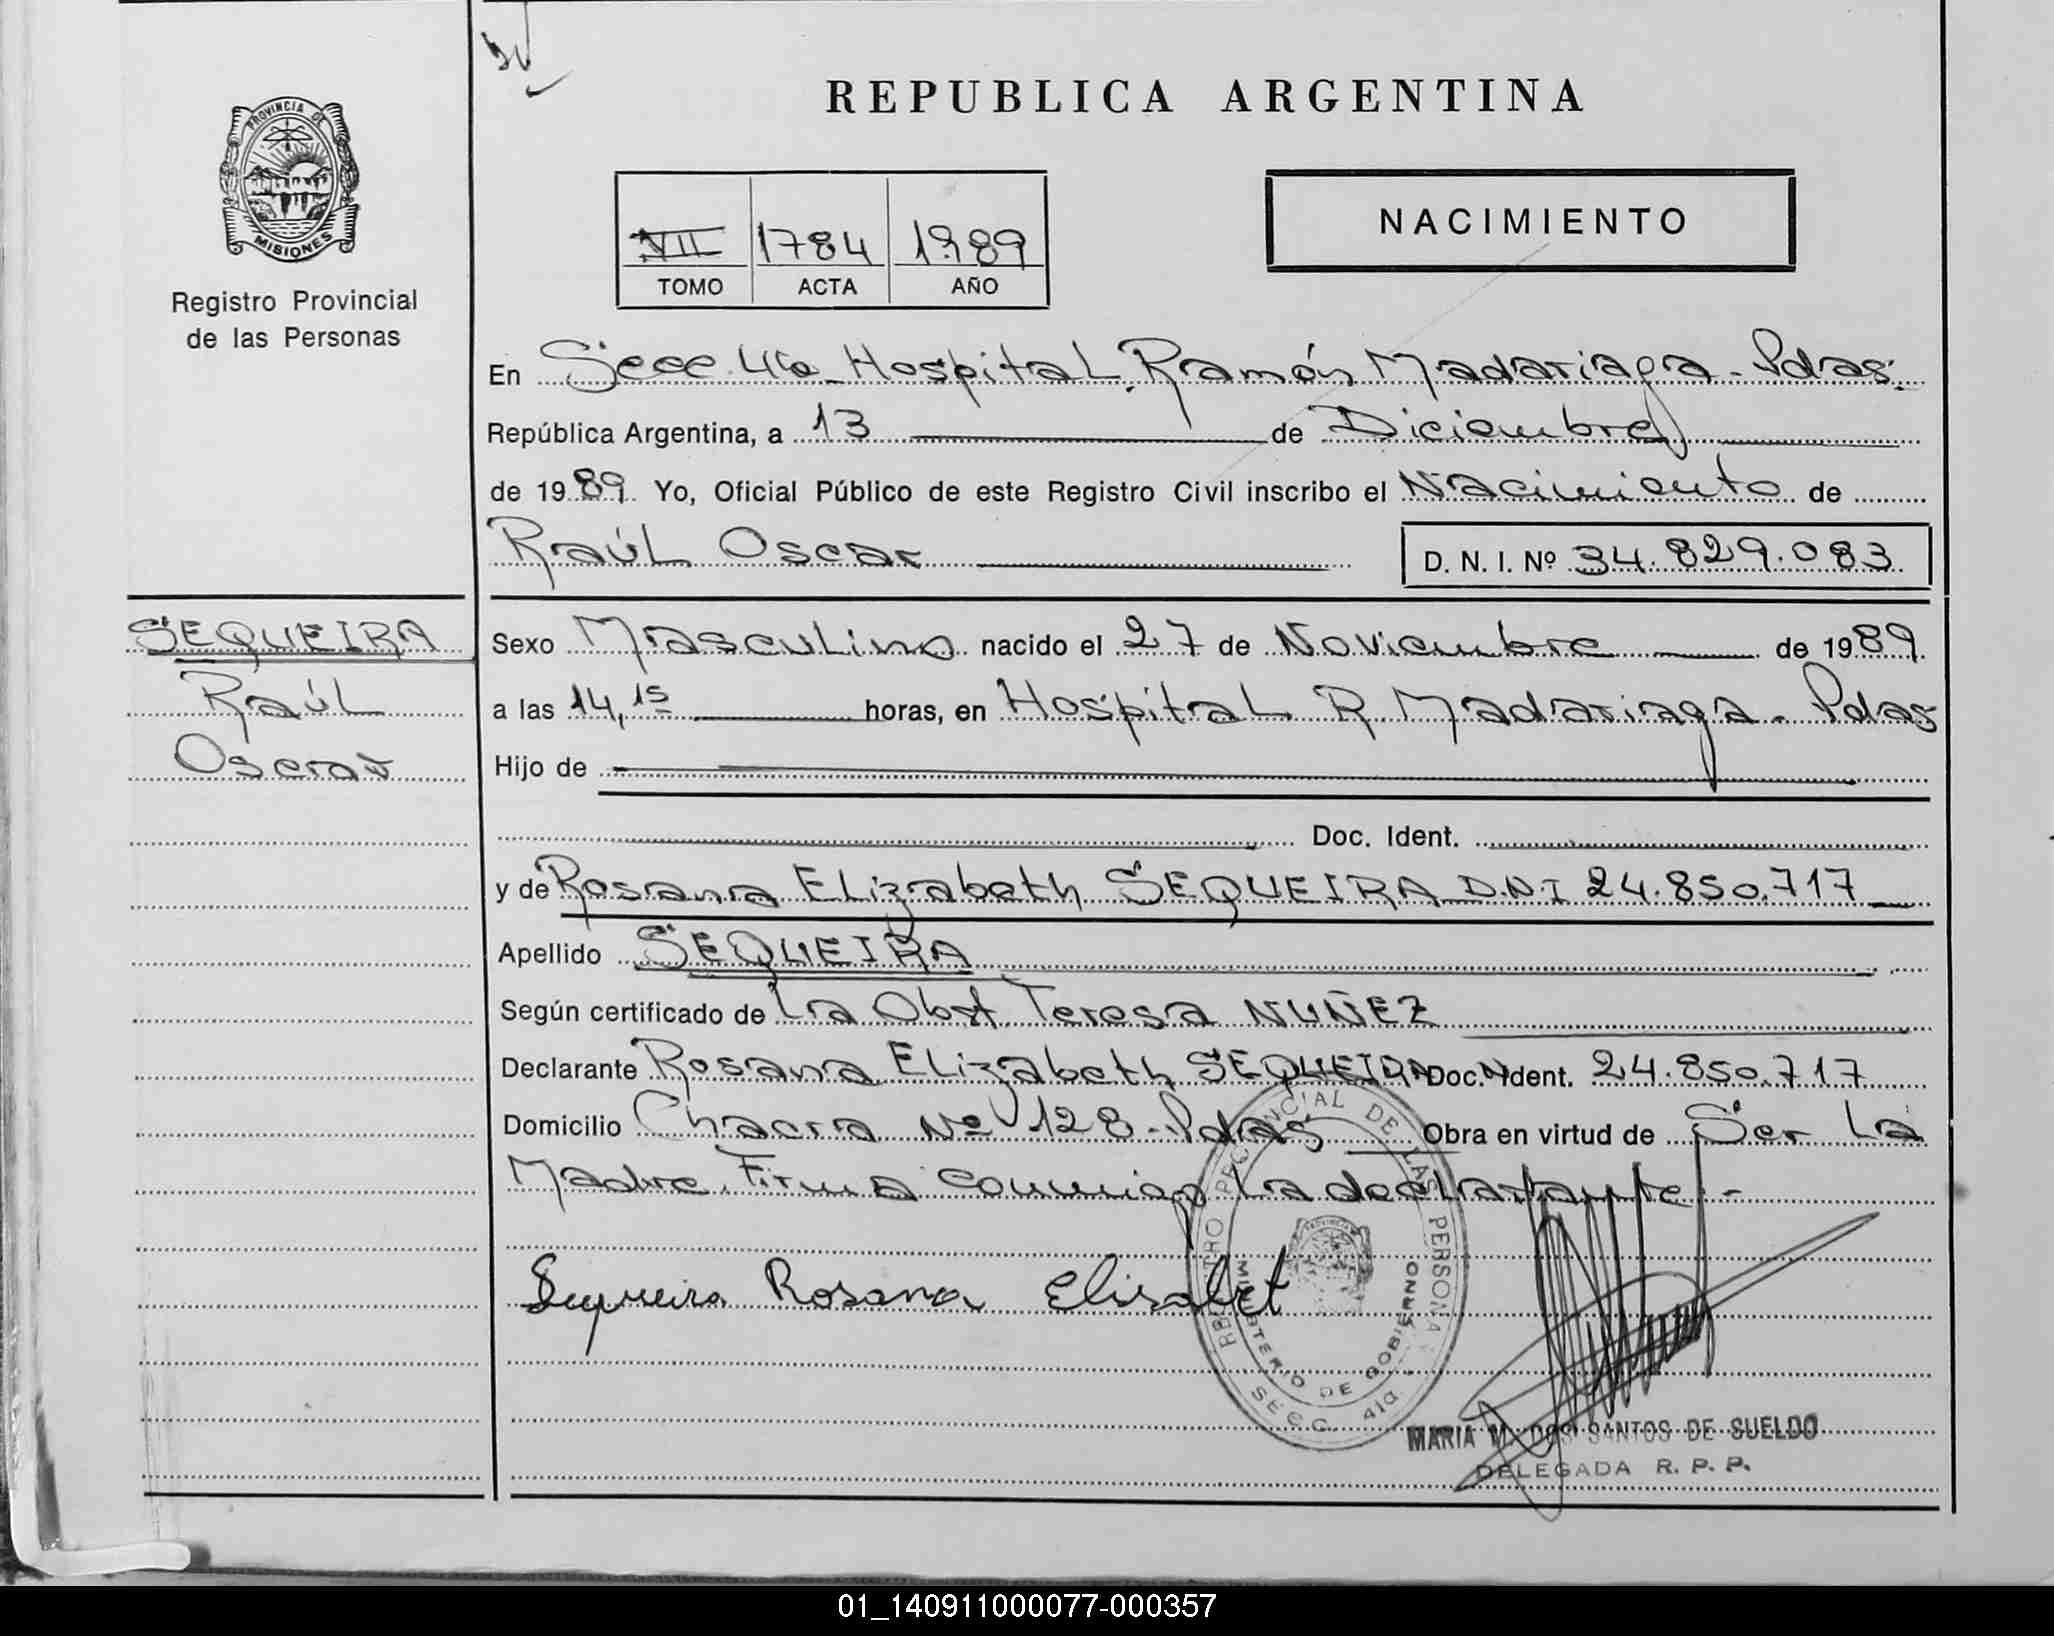 REPUBLICA ARGENTINA
PROVINCIA DE
MISIONES
Registro Provincial
de las Personas
VII 1784 1989
TOMO ACTA AÑO
NACIMIENTO
En Secc. 4ta Hospital Ramón Madariaga - Pdas.
República Argentina, a 13 de Diciembre
de 1989 Yo, Oficial Público de este Registro Civil inscribo el Nacimiento de
Raúl Oscar D. N. I. Nº 34.829.083
SEQUEIRA
Raúl
Oscar
Sexo Masculino nacido el 27 de Noviembre de 1989
a las 14,15 horas, en Hospital R. Madariaga - Pdas
Hijo de
Doc. Ident.
y de Rosana Elizabeth SEQUEIRA D.N.I 24.850.717
Apellido SEQUEIRA
Según certificado de La Obst Teresa NUÑEZ
Declarante Rosana Elizabeth SEQUEIRA Doc. Ident. 24.850.717
Domicilio Chacra Nº 128 - Pdas Obra en virtud de Ser La
Madre. Firma conmigo La declarante. -
Sequeira Rosana Elisabet
REGISTRO PROVINCIAL DE LAS PERSONAS
MINISTERIO DE GOBIERNO
SECC. 4ta.
MARIA M. DOS SANTOS DE SUELDO
DELEGADA R. P. P.
01_140911000077-000357